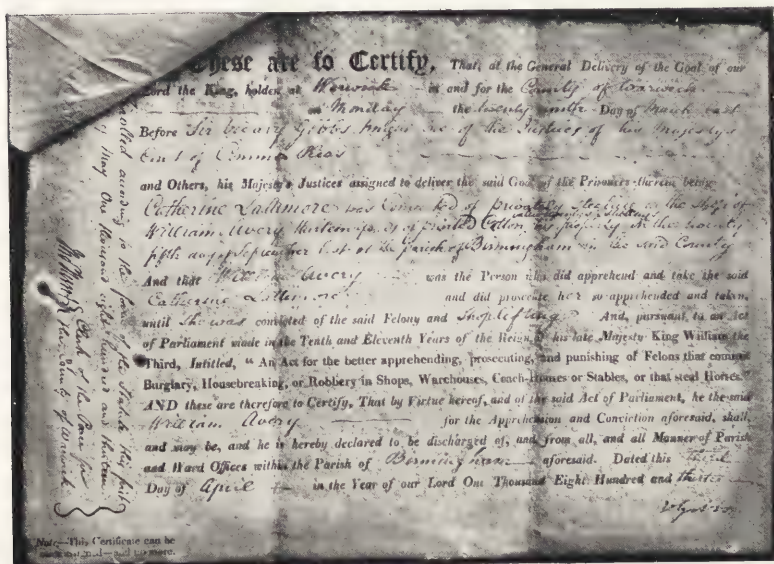 These are to Certify, That, at the General Delivery of the Goal of our
Lord the King, holden at Warwick in and for the County of Warwick
on Monday the twenty ninth Day of March last
Before Sir Vicary Gibbs Knight one of the Justices of his Majestys
Court of Common Pleas
and Others, his Majesty's Justices assigned to deliver the said Goal of the Prisoners therein being
Catherine Lattimore was convicted of privately stealing in the Shop of
William Avery of printed Cotton his property in the twenty
fifth day of September last at the parish of Birmingham in the said County
And that William Avery was the Person who did apprehend and take the said
Catherine Lattimore and did prosecute her so apprehended and taken,
until She was convicted of the said Felony and Shoplifting And, pursuant to an Act
of Parliament made in the Tenth and Eleventh Years of the Reign of his late Majesty King William the
Third, Intitled, " An Act for the better apprehending, prosecuting, and punishing of Felons that commit
Burglary, Housebreaking, or Robbery in Shops, Warehouses, Coach-Houses or Stables, or that steal Horses."
AND these are therefore to Certify, That by Virtue hereof, and of the said Act of Parliament, he the said
William Avery for the Apprehension and Conviction aforesaid, shall,
and may be, and he is hereby declared to be discharged of, and from all, and all Manner of Parish
and Ward Offices within the Parish of Birmingham aforesaid. Dated this third
Day of April in the Year of our Lord One Thousand Eight Hundred and thirteen
Inrolled according to the form of the Statute this first
of May One thousand eight hundred and thirteen
Clerk of the Peace for
the County of Warwick
Note—This Certificate can be
once and no more.